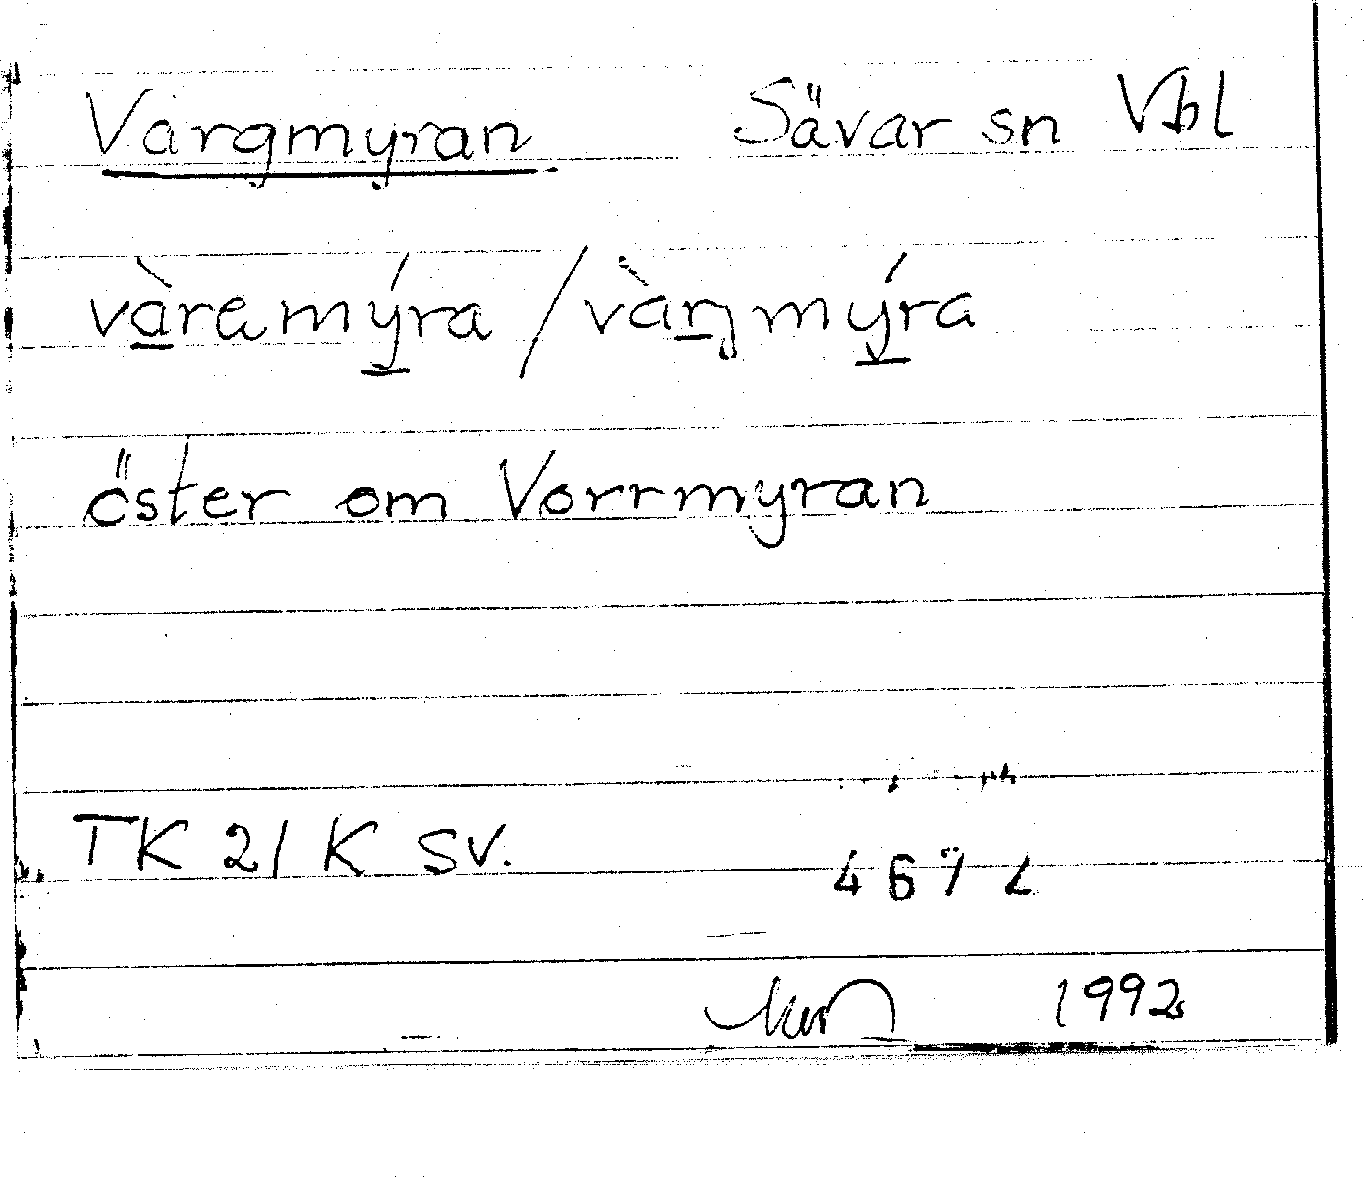 Vargmyran Sävar sn Vbl
vàremýra / vàrŋmýra
öster om Vorrmyran
TK 21 K SV.
1992